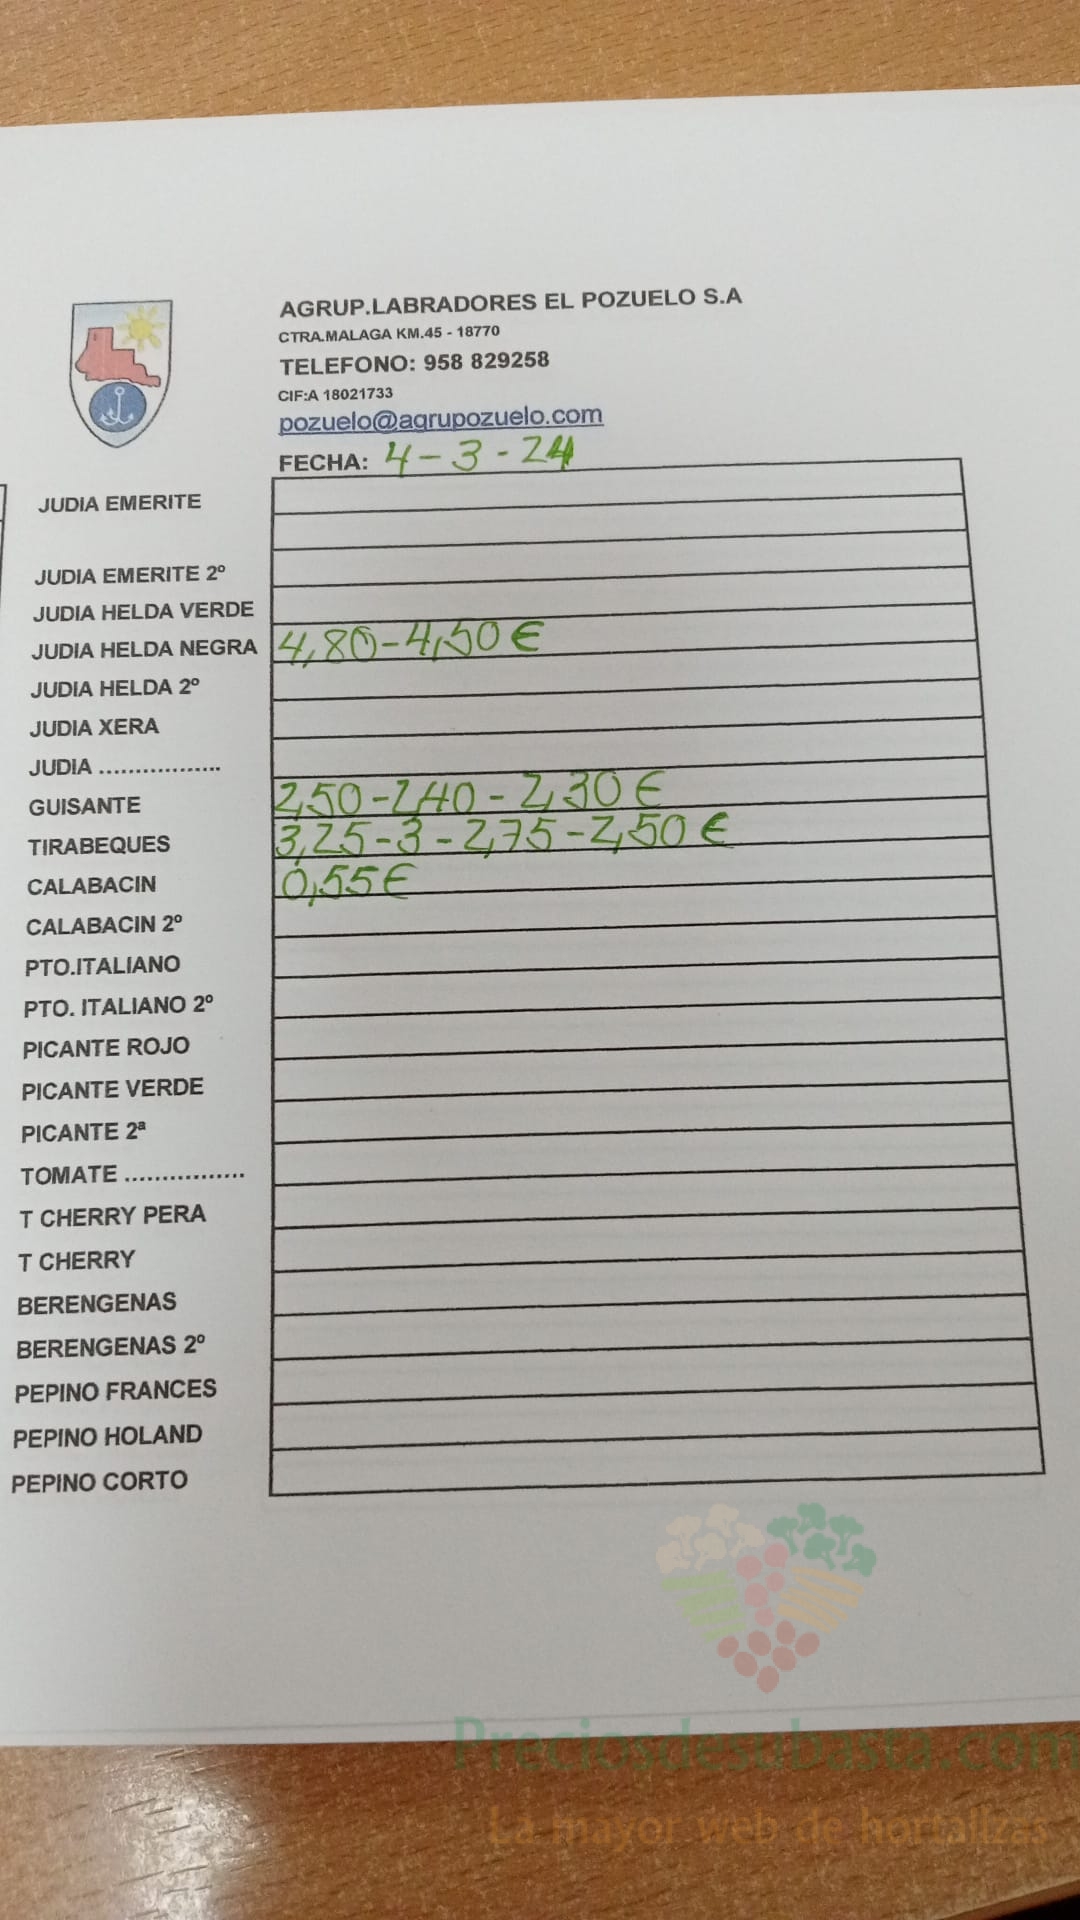 AGRUP.LABRADORES EL POZUELO S.A
CTRA.MALAGA KM.45 - 18770
TELEFONO: 958 829258
CIF:A 18021733
pozuelo@agrupozuelo.com
FECHA: 4-3-24
JUDIA EMERITE
JUDIA EMERITE 2º
JUDIA HELDA VERDE
JUDIA HELDA NEGRA 4,80-4,50€
JUDIA HELDA 2º
JUDIA XERA
JUDIA .................
GUISANTE 2,50-2,40-2,30€
TIRABEQUES 3,25-3-2,75-2,50€
CALABACIN 0,55€
CALABACIN 2º
PTO.ITALIANO
PTO. ITALIANO 2º
PICANTE ROJO
PICANTE VERDE
PICANTE 2ª
TOMATE ................
T CHERRY PERA
T CHERRY
BERENGENAS
BERENGENAS 2º
PEPINO FRANCES
PEPINO HOLAND
PEPINO CORTO
Preciosdesubasta.com
La mayor web de hortalizas